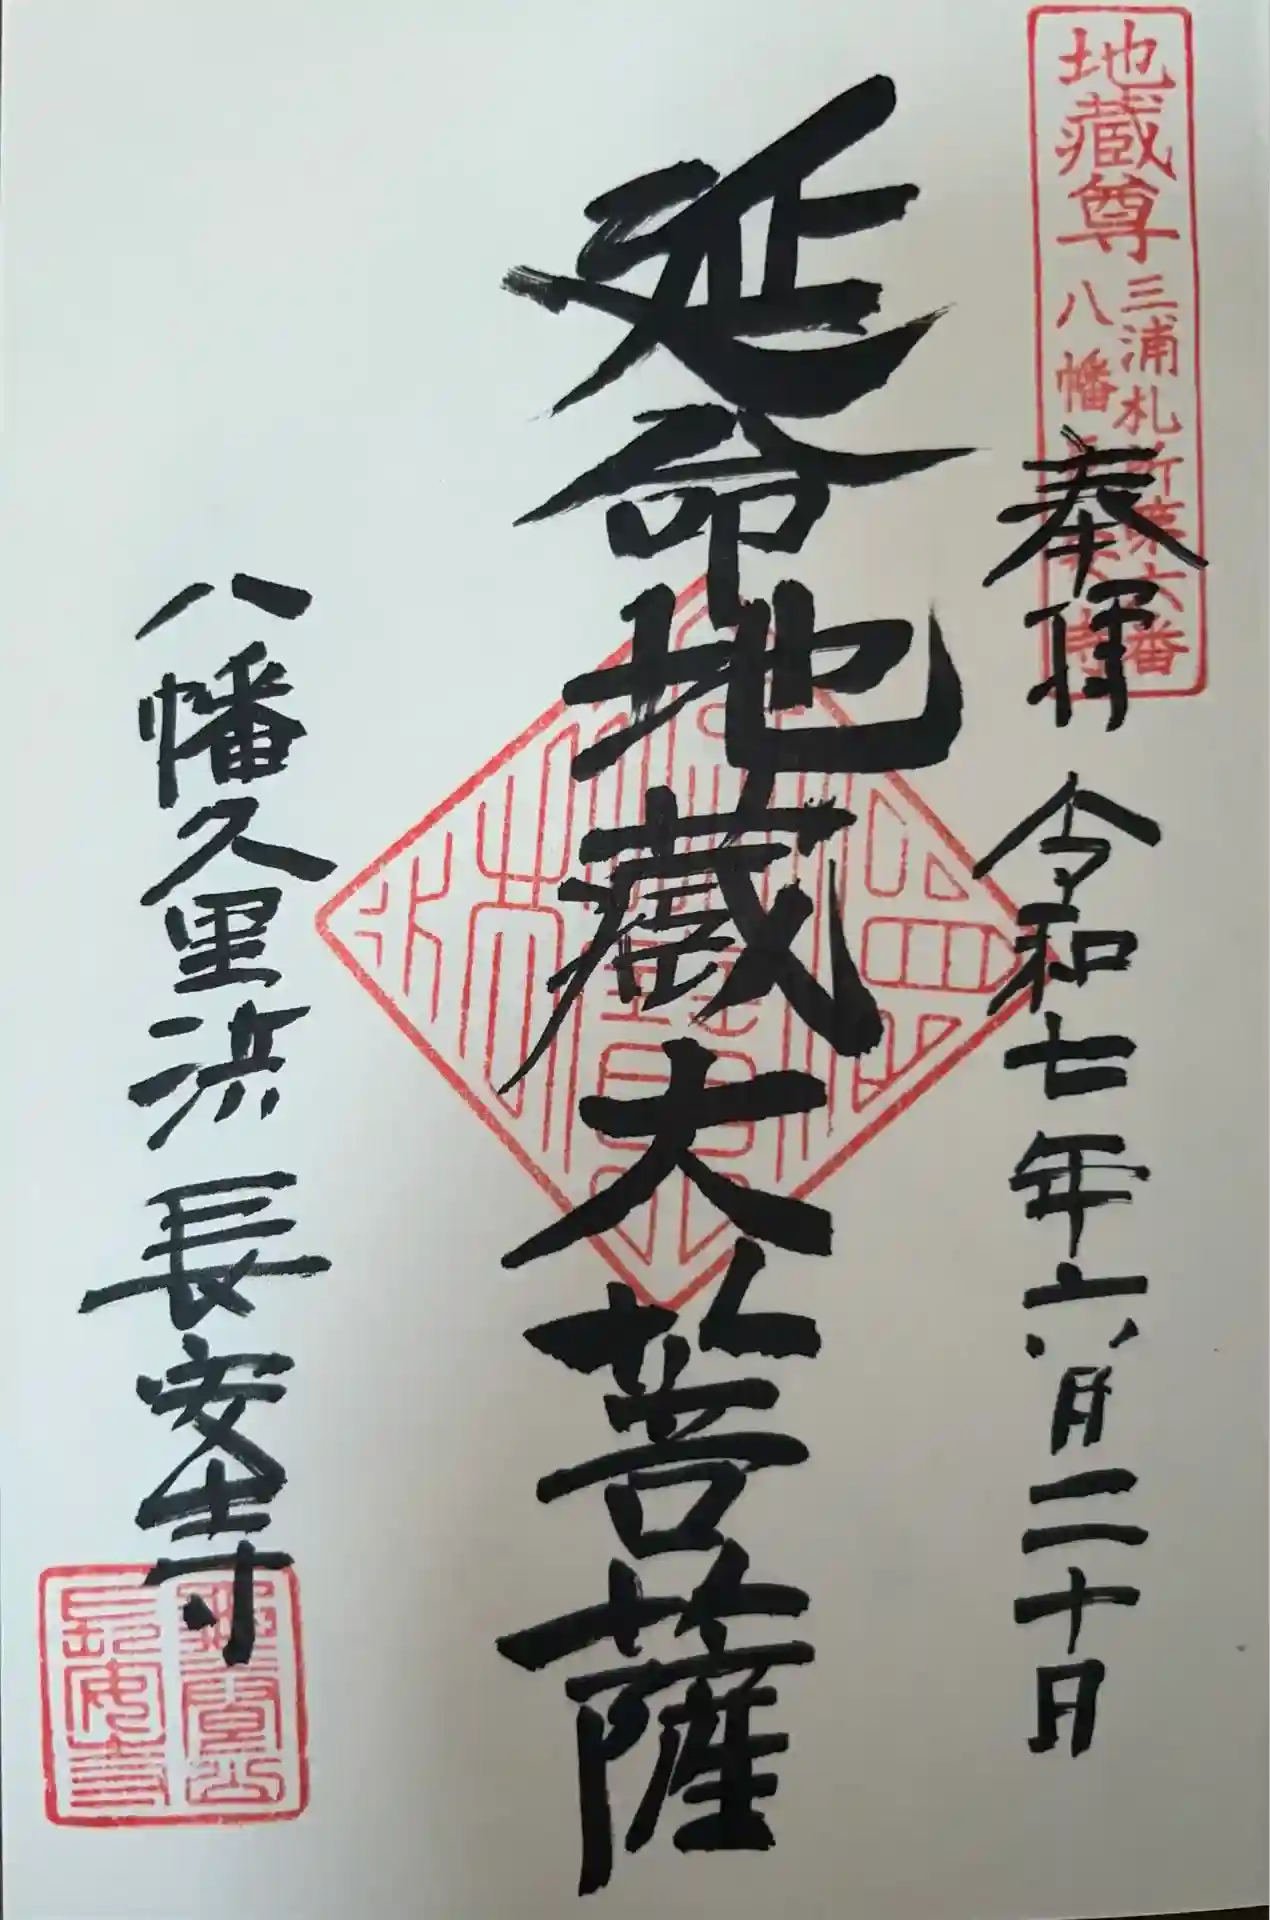 地蔵尊
三浦札所第六番
八幡
奉拝 令和七年六月二十日
延命地蔵大菩薩
八幡久里浜 長安寺
長安寺